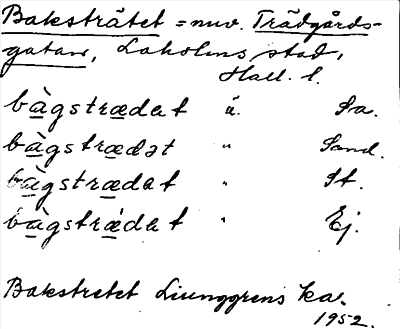 Baksträtet = nuv. Trädgårds-
gatan, Laholms stad,
Hall. l.
bàgstrædat u. Sa.
bàgstrædət " Sand.
bàgstrædat " St.
bàgstrædat " Ej.
Bakstretet Liunggrens ka.
1952.